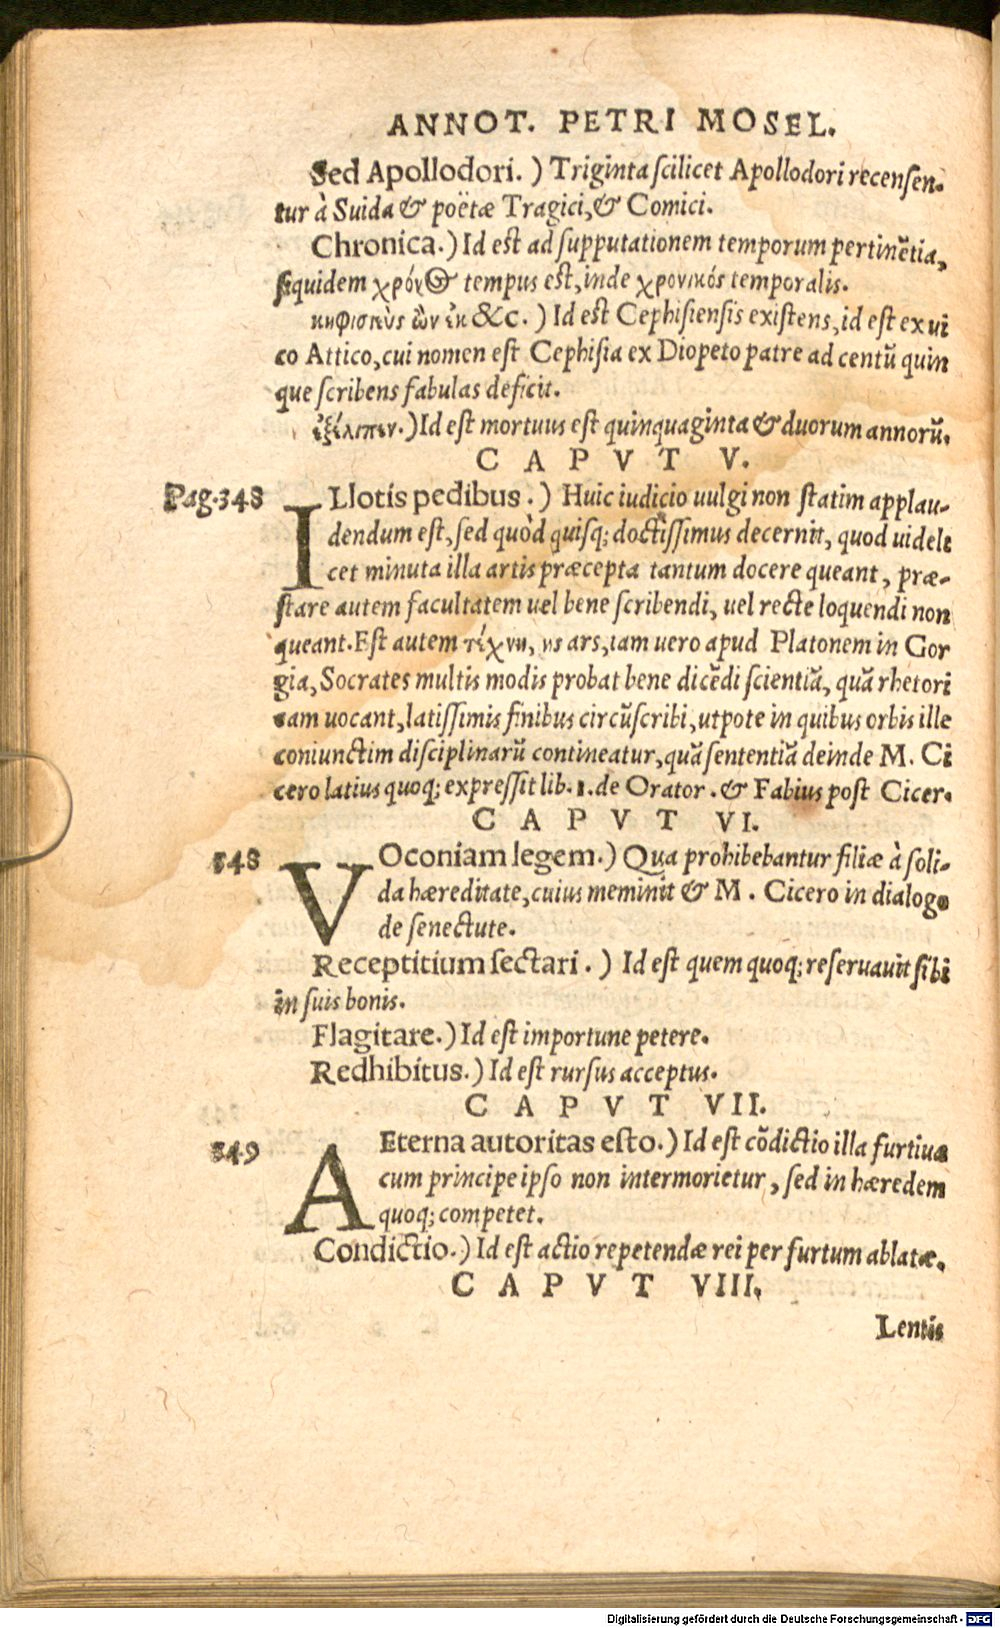 ANNOT. PETRI MOSEL.
Sed Apollodori.) Triginta scilicet Apollodori recensen-
tur à Suida & poëtæ Tragici, & Comici.
Chronica.) Id est ad supputationem temporum pertinẽtia,
siquidem χρόνος tempus est, inde χρονικός temporalis.
κηφισιεὺς ὢν ἐκ &c.) Id est Cephisiensis existens, id est ex ui
co Attico, cui nomen est Cephisia ex Diopeto patre ad centũ quin
que scribens fabulas deficit.
ἐξέλιπεν.) Id est mortuus est quinquaginta & duorum annorũ.
CAPVT V.
Pag. 348 ILlotis pedibus.) Huic iudicio uulgi non statim applau-
dendum est, sed quòd quisq; doctissimus decernit, quod uideli
cet minuta illa artis præcepta tantum docere queant, præ-
stare autem facultatem uel bene scribendi, uel recte loquendi non
queant. Est autem τέχνη, ης ars, iam uero apud Platonem in Gor
gia, Socrates multis modis probat bene dicẽdi scientiã, quã rhetori
cam uocant, latissimis finibus circũscribi, utpote in quibus orbis ille
coniunctim disciplinarũ contineatur, quã sententiã deinde M. Ci
cero latius quoq; expressit lib. 1. de Orator. & Fabius post Cicer.
CAPVT VI.
348 VOconiam legem.) Qua prohibebantur filiæ à soli-
da hæreditate, cuius meminit & M. Cicero in dialogo
de senectute.
Receptitium sectari.) Id est quem quoq; reseruauit sibi
in suis bonis.
Flagitare.) Id est importune petere.
Redhibitus.) Id est rursus acceptus.
CAPVT VII.
349 AEterna autoritas esto.) Id est cõdictio illa furtiua
cum principe ipso non intermorietur, sed in hæredem
quoq; competet.
Condictio.) Id est actio repetendæ rei per furtum ablatæ.
CAPVT VIII.
Lentis
Digitalisierung gefördert durch die Deutsche Forschungsgemeinschaft - DFG